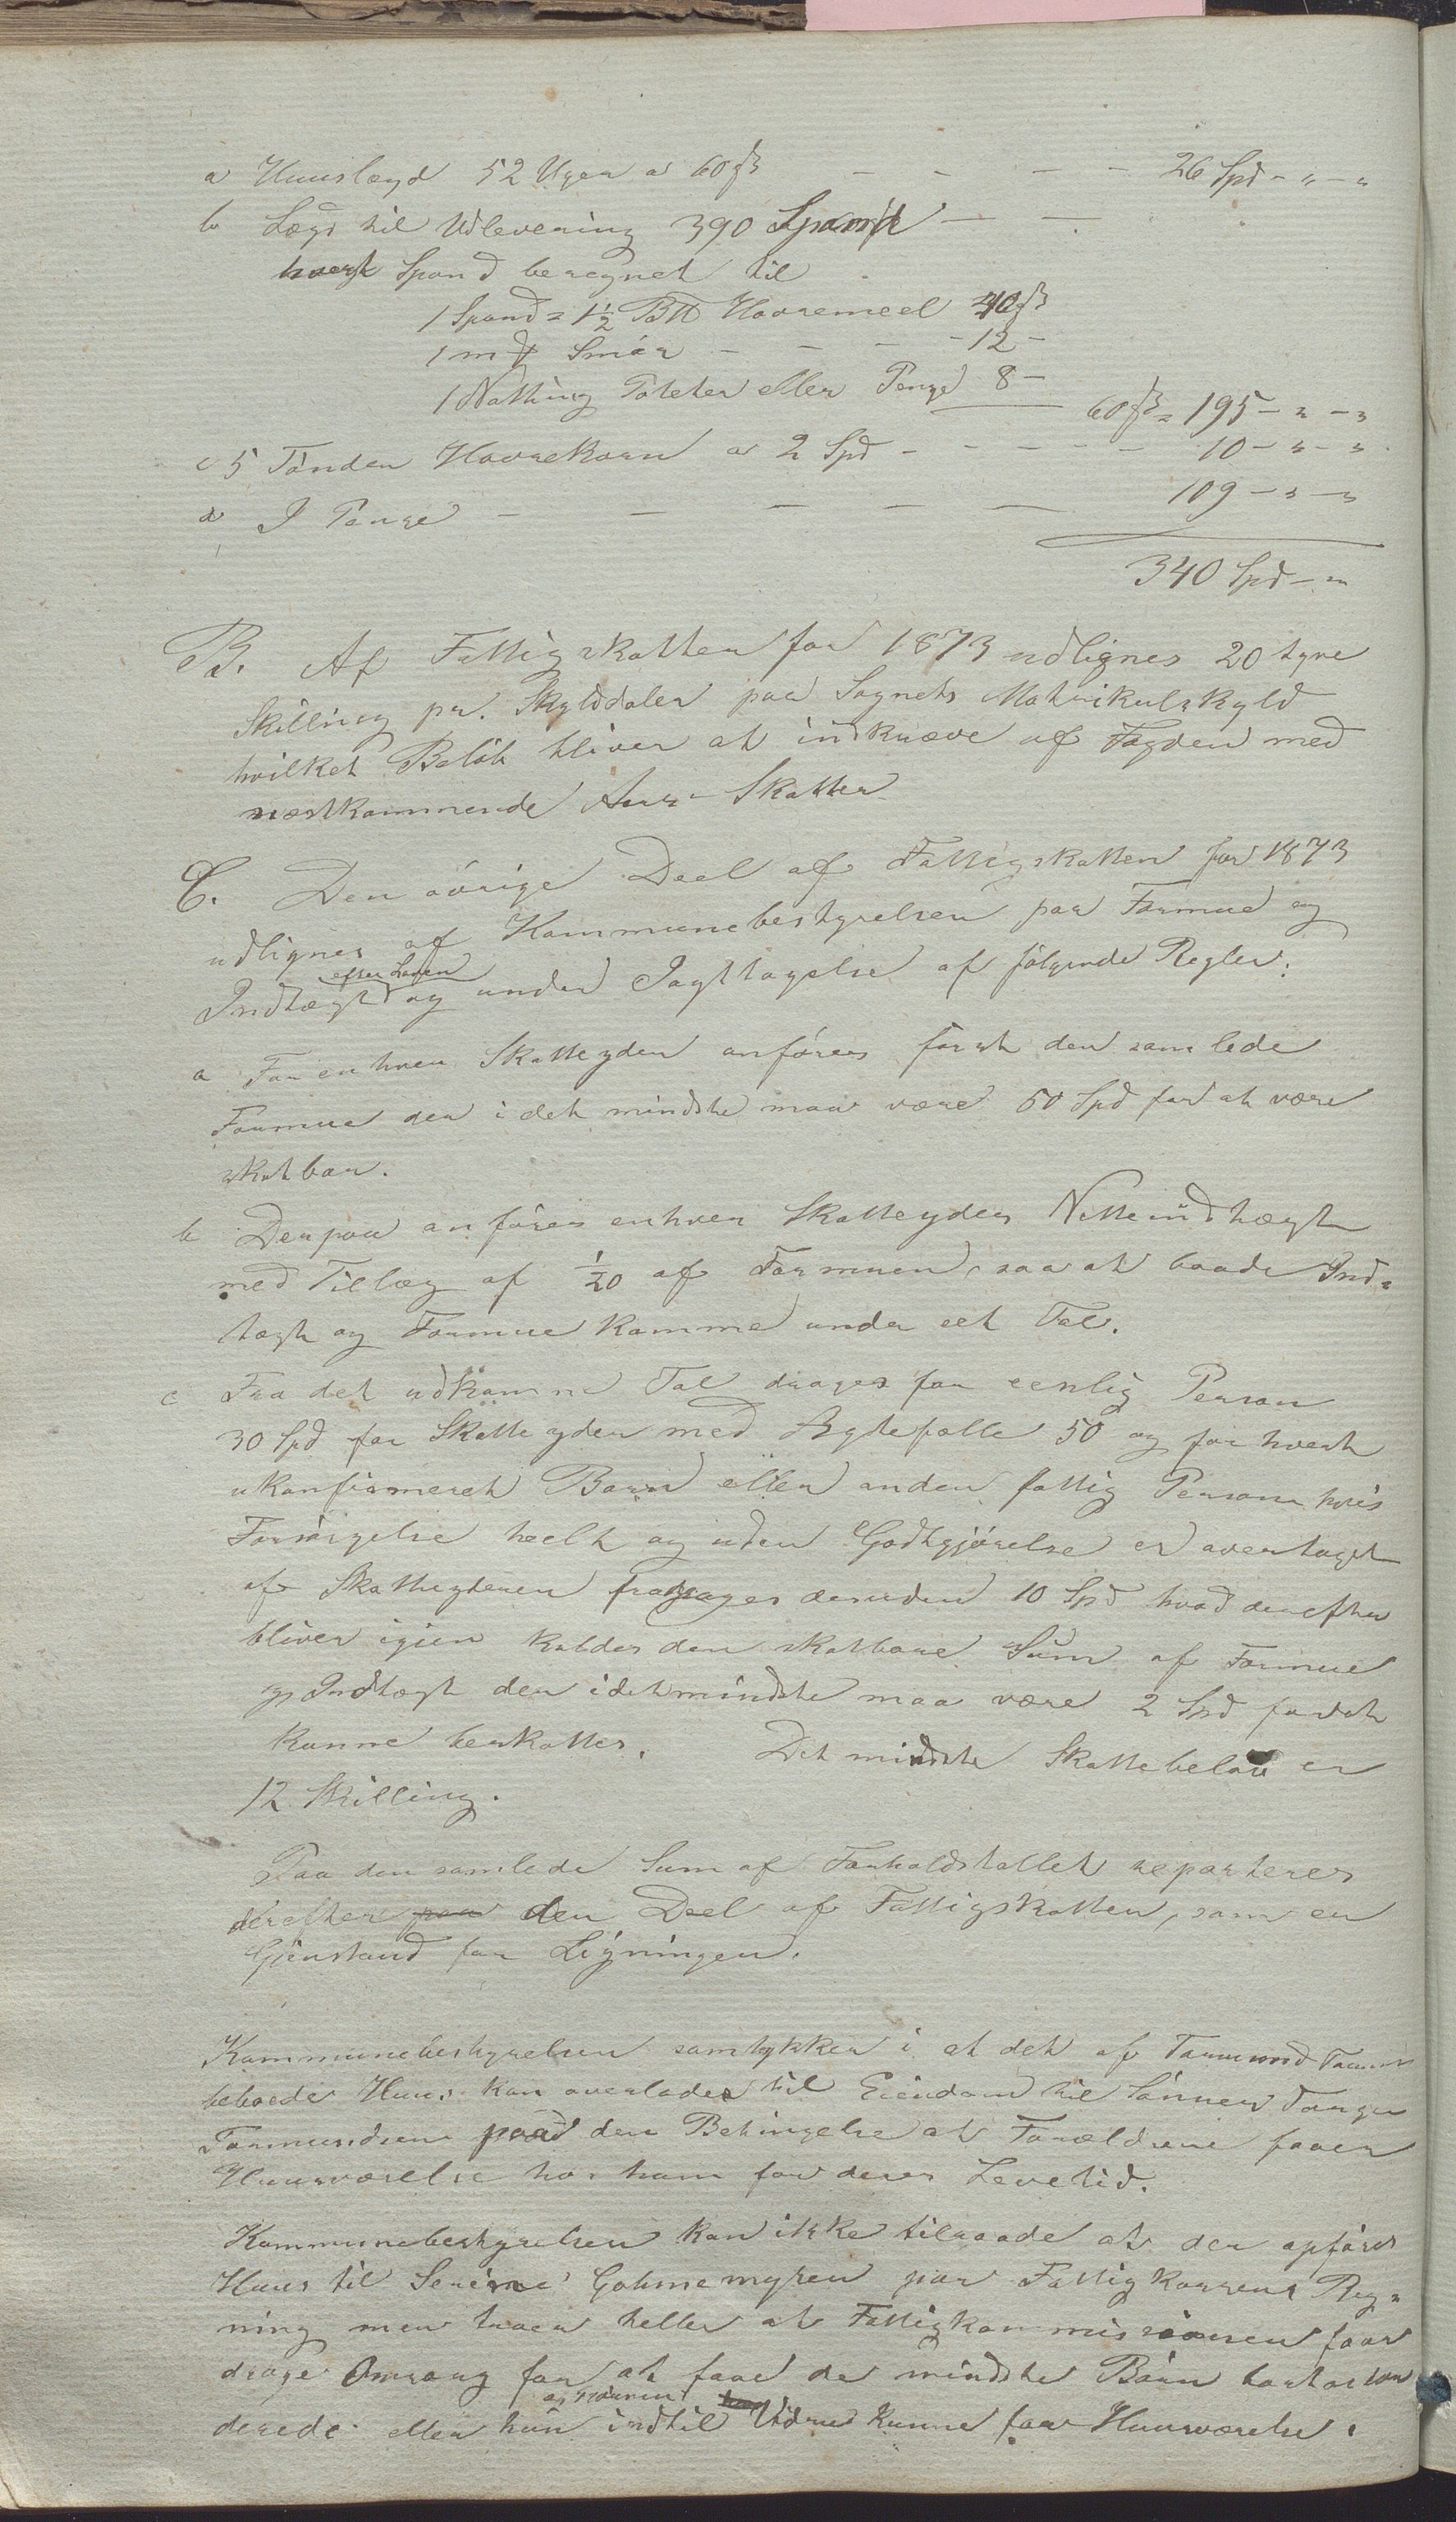 a Huuslægd 52 Uger a 60 ß - - - - 26 Spd - " - "
b Lægd til Udlevering 390 Spand - -
hvert Spand beregnet til
1 Spand = 1½ B℔ Havremeel 40 ß
1 m℔ Smör - - - - 12 -
1 Notting Poteter eller Penge 8 -
60 ß = 195 - " - "
c 5 Tönder Havrekorn a 2 Spd - - - - 10 - " - "
d I Penge - - - - - 109 - " - "
340 Spd - "
B. Af Fattigskatten for 1873 udlignes 20 tyve
Skilling pr. Skylddaler paa Sognets Matrikulskyld
hvilket Belöb bliver at indkræve af Fogden med
næstkommende Aars-Skatter
C. Den övrige Deel af Fattigskatten for 1873
udlignes af Kommunebestyrelsen paa Formue og
efter Loven
Indtægt og under Iagttagelse af fölgende Regler:
a For enhver Skatteyder anföres först den samlede
Formue der i det mindste maa være 50 Spd for at være
skatbar.
b Derpaa anföres enhver Skatteyders Nettoindtægt
med Tillæg af 1/20 af Formuen, saa at baade Ind=
tægt og Formue komme under eet Tal.
c Fra det udkomne Tal drages for eenlig Person
30 Spd for Skatteyder med Ægtefælle 50 og for hvert
ukonfirmeret Barn eller anden fattig Person hvis
Forsörgelse heelt og uden Godtgjörelse er overtaget
af Skatteyderen fradrages desuden 10 Spd hvad derefter
bliver igien kaldes den skatbare Sum af Formue
og Indtægt der idetmindste maa være 2 Spd for at
kunne beskattes. Det mindste Skattebelöb er
12 Skilling.
Paa den samlede Sum af Forholdstallet reparteres
derefter paa den Deel af Fattigskatten, som er
Gjenstand for Ligningen.
Kommunebestyrelsen samtykker i at det af Tormund
beboede Huus kan overlades til Eiendom til Sönnen
Tormundsen paa den Betingelse at Forældrene faaer
Huusværelse hos ham for deres Levetid.
Kommunebestyrelsen kan ikke tilraade at der opföres
Huus til Serine Gohmemyren paa Fattigkassens Reg=
ning men troer heller at Fattigkommissionen faar
drage Omsorg for at faae de mindste Börn bortakkor
derede eller hun indtil Videre kunne faae Huusværelse.